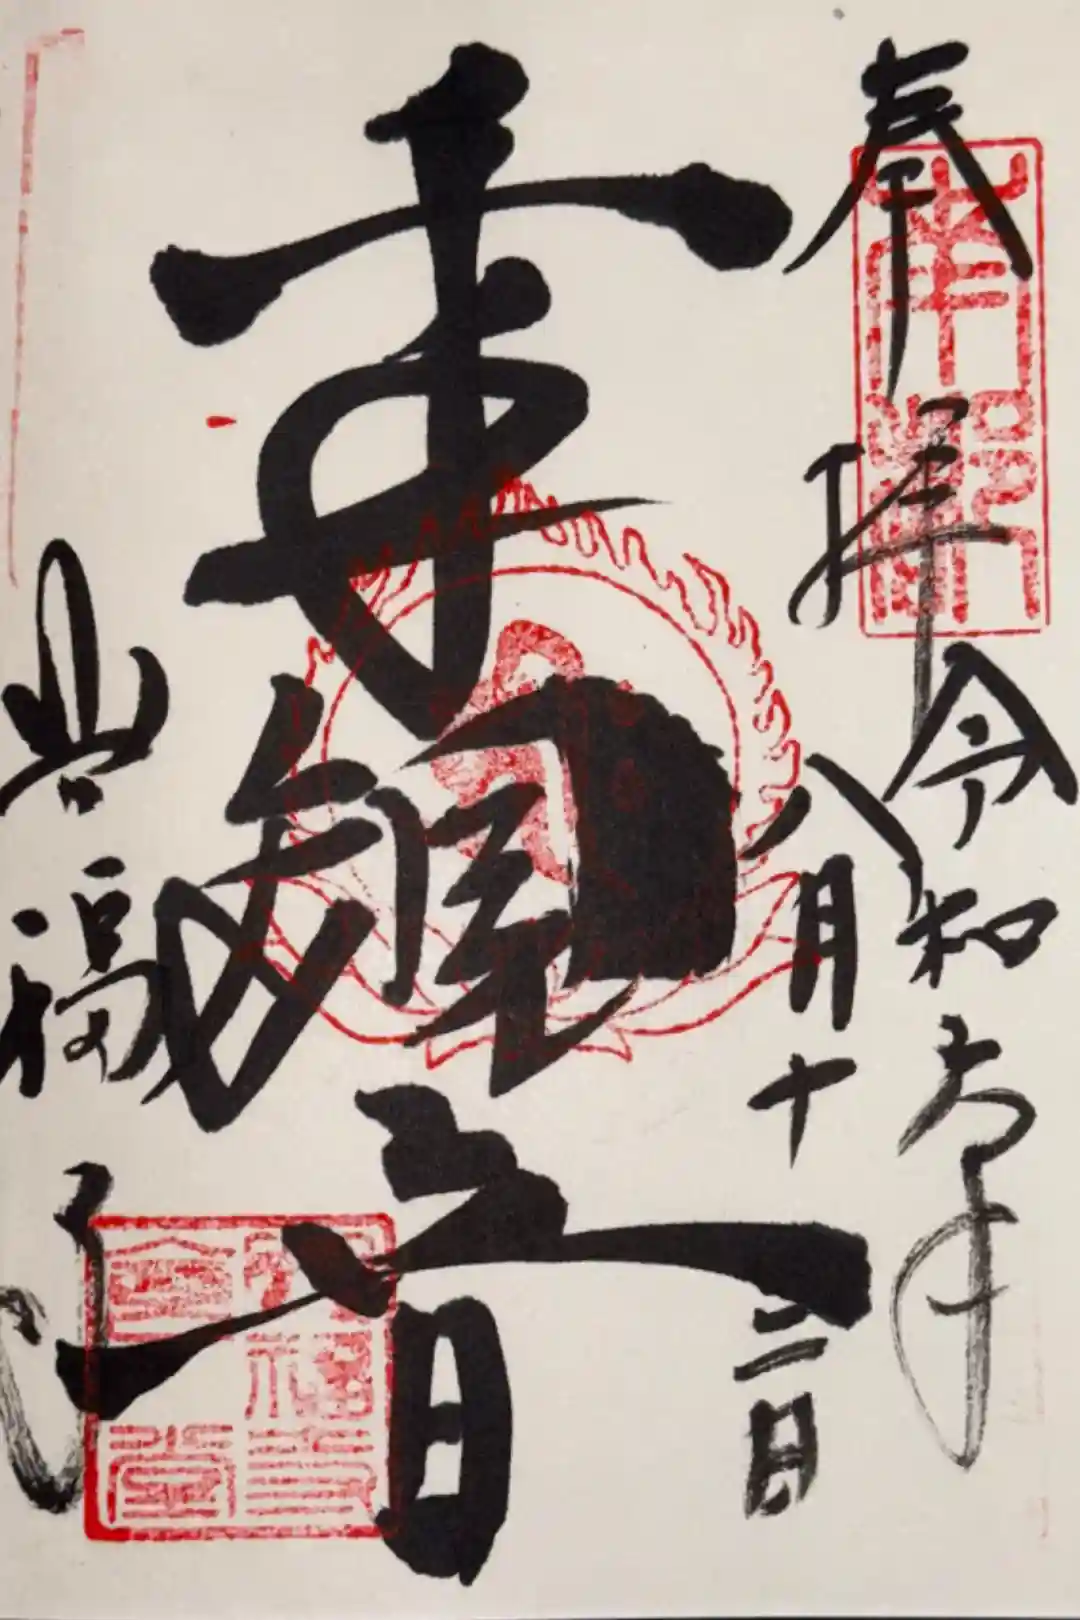 奉拝
令和六年
八月十二日
千手観音
興福寺